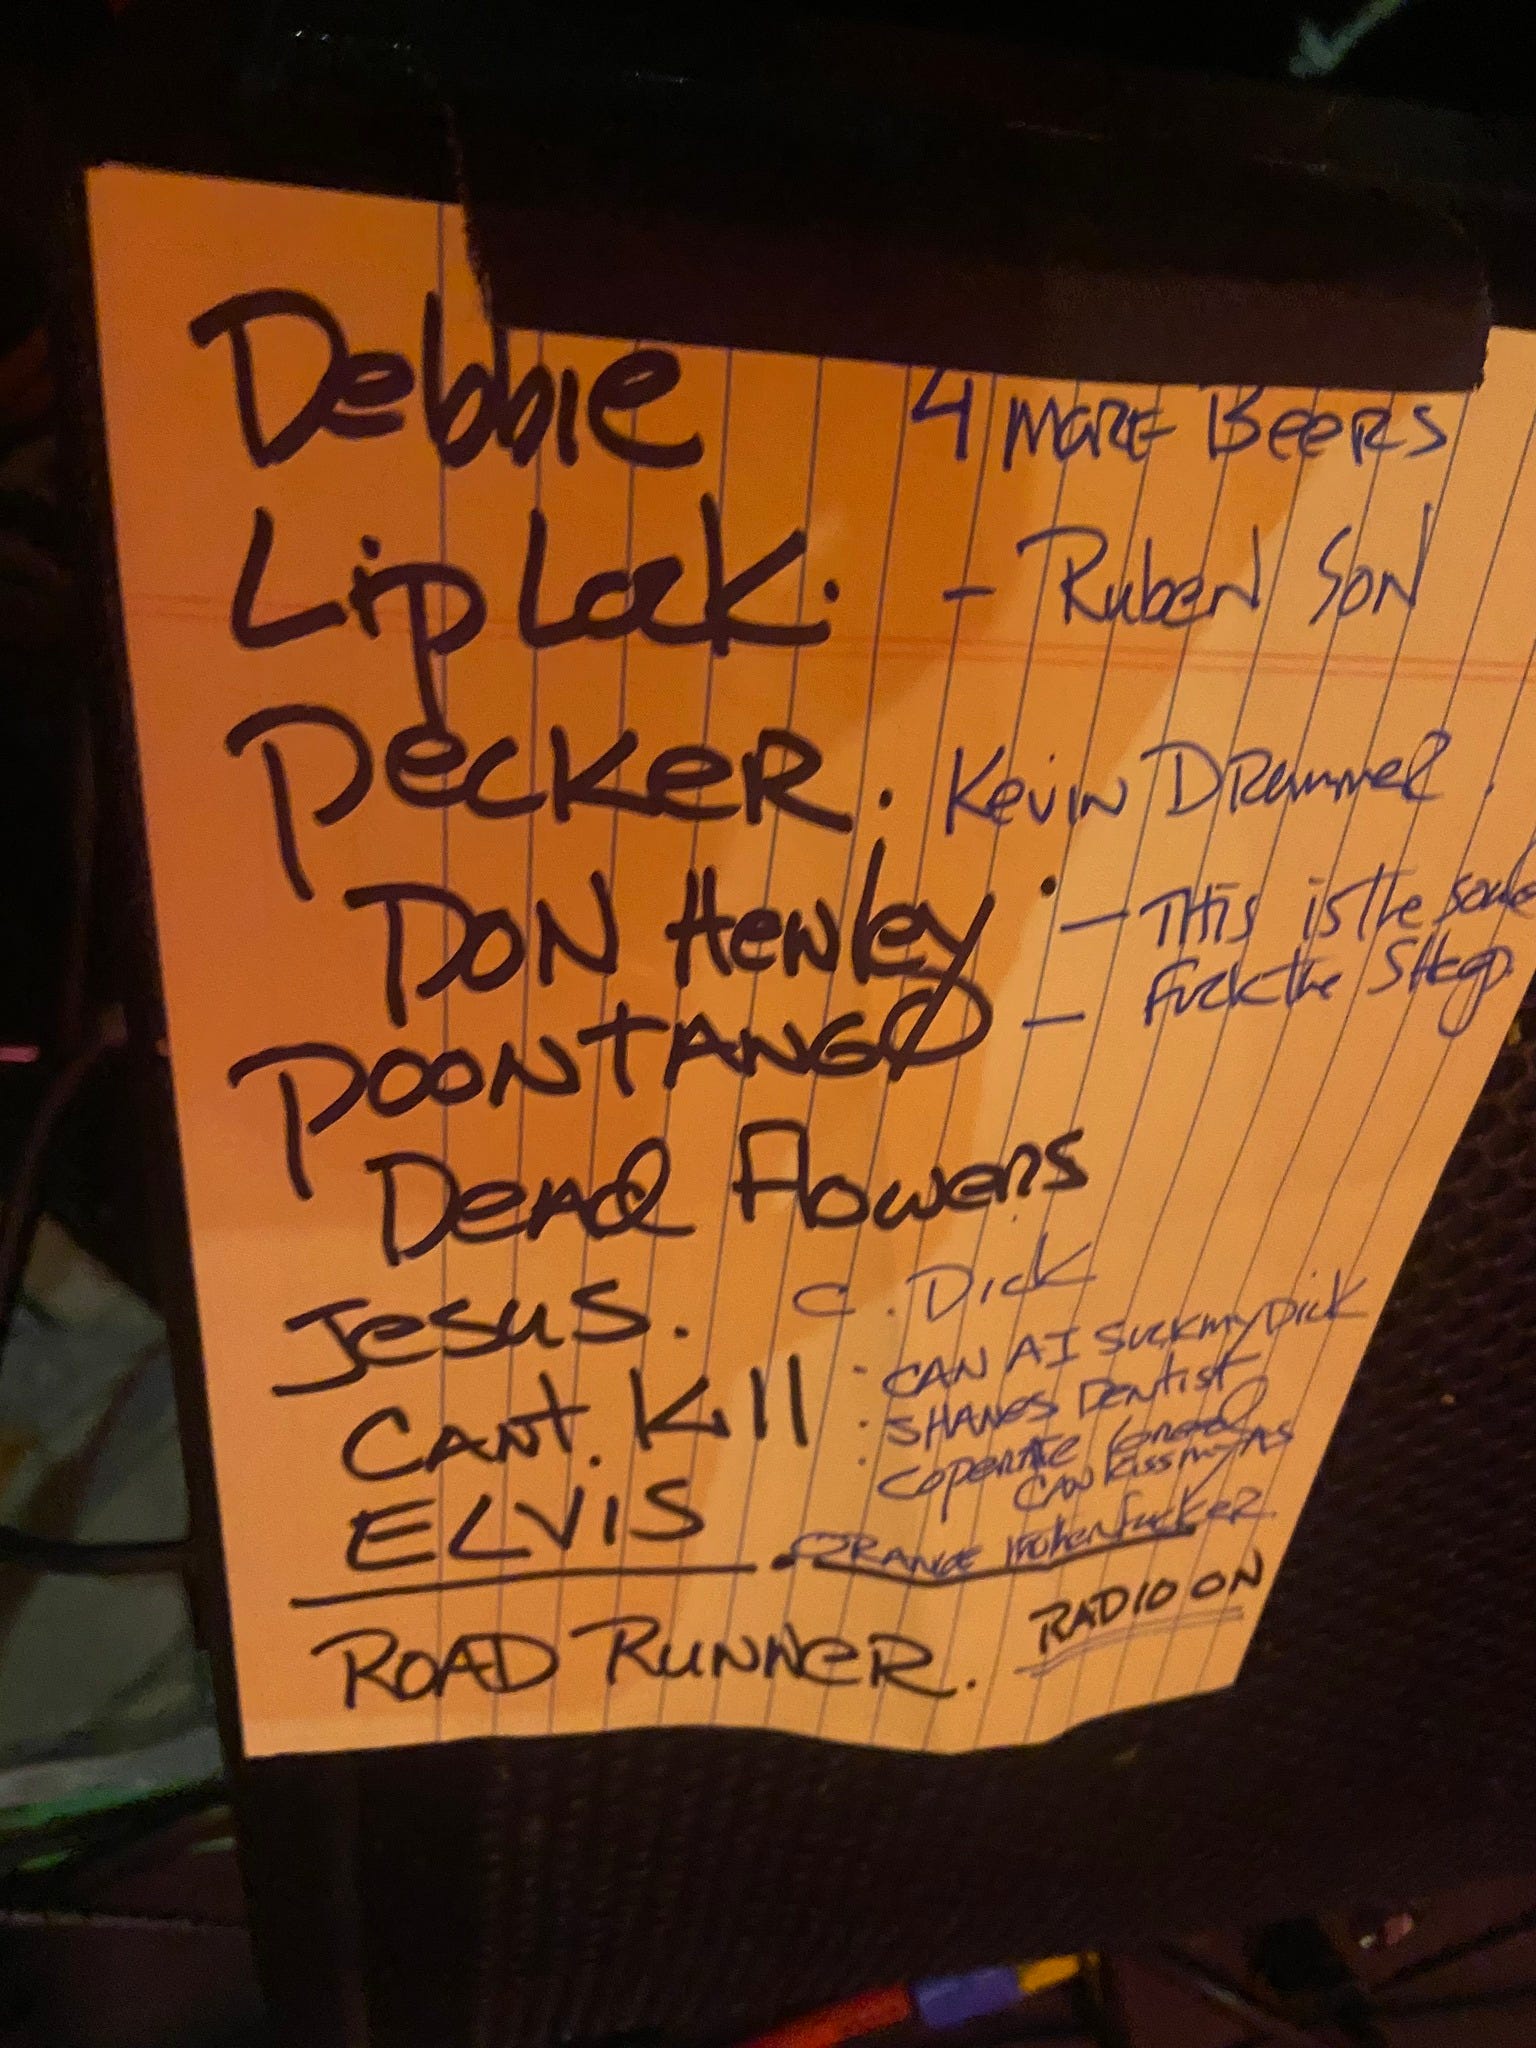 Debbie 4 MORE BeeRS
Lip Lock. - RubeN SON
PecKeR. KeviN DRummer.
DON Henley. - THis is the
POONTANGO - Fuck the
DeAd Flowers
Jesus. C. Dick
CANt. Kill . CAN AI suck my Dick
. SHANES DentisT
. coperate Greed
CAN Kiss my AS
ELViS
. ORANGE MotherFuckeR.
ROAD RUNNeR. RADIO ON